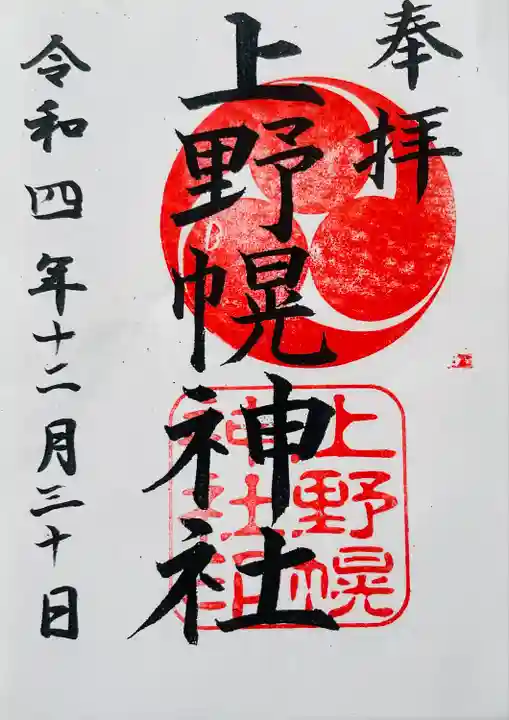 奉拝
上野幌神社
令和四年十二月三十日
上野幌
神社